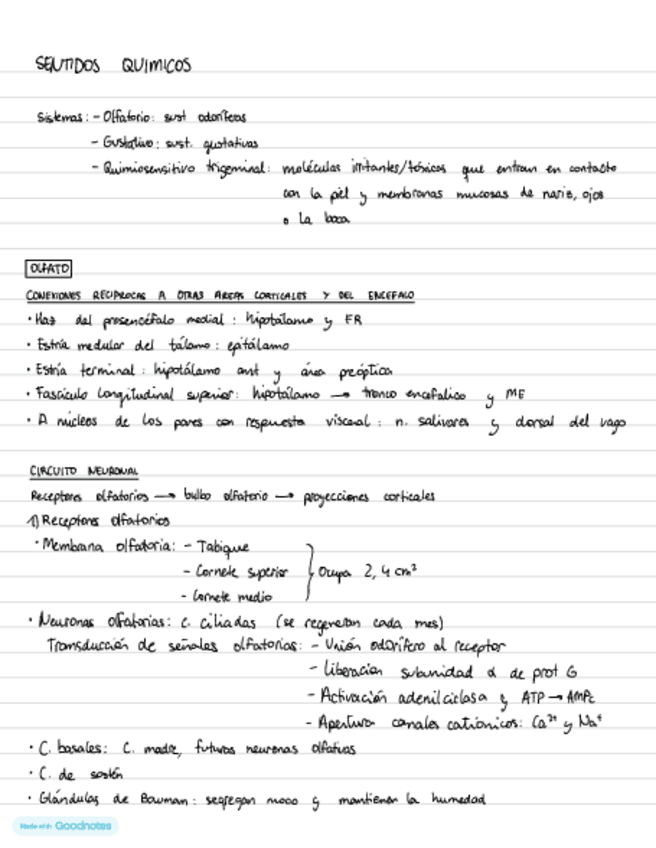 SENTIDOS QUIMICOS
Sistemas: - Olfatorio: sust odoríferas
- Gustativo: sust. gustativas
- Quimiosensitivo trigeminal: moléculas irritantes/tóxicas que entran en contacto
con la piel y membranas mucosas de nariz, ojos
o la boca
OLFATO
CONEXIONES RECIPROCAS A OTRAS AREAS CORTICALES Y DEL ENCEFALO
· Haz del presencéfalo medial: hipotálamo y FR
· Estría medular del tálamo: epitálamo
· Estría terminal: hipotálamo ant y área preóptica
· Fascículo longitudinal superior: hipotálamo → tronco encefalico y ME
· A núcleos de los pares con respuesta visceral: n. salivares y dorsal del vago
CIRCUITO NEURONAL
Receptores olfatorios → bulbo olfatorio → proyecciones corticales
1) Receptores olfatorios
· Membrana olfatoria: - Tabique
- Cornete superior } Ocupa 2,4 cm²
- Cornete medio
· Neuronas olfatorias: c. ciliadas (se regeneran cada mes)
Transducción de señales olfatorias: - Unión odorífero al receptor
- Liberación subunidad α de prot G
- Activación adenilciclasa y ATP → AMPc
- Apertura canales catiónicos: Ca²⁺ y Na⁺
· C. basales: C. madre, futuras neuronas olfativas
· C. de sostén
· Glándulas de Bowman: segregan moco y mantienen la humedad
Made with Goodnotes